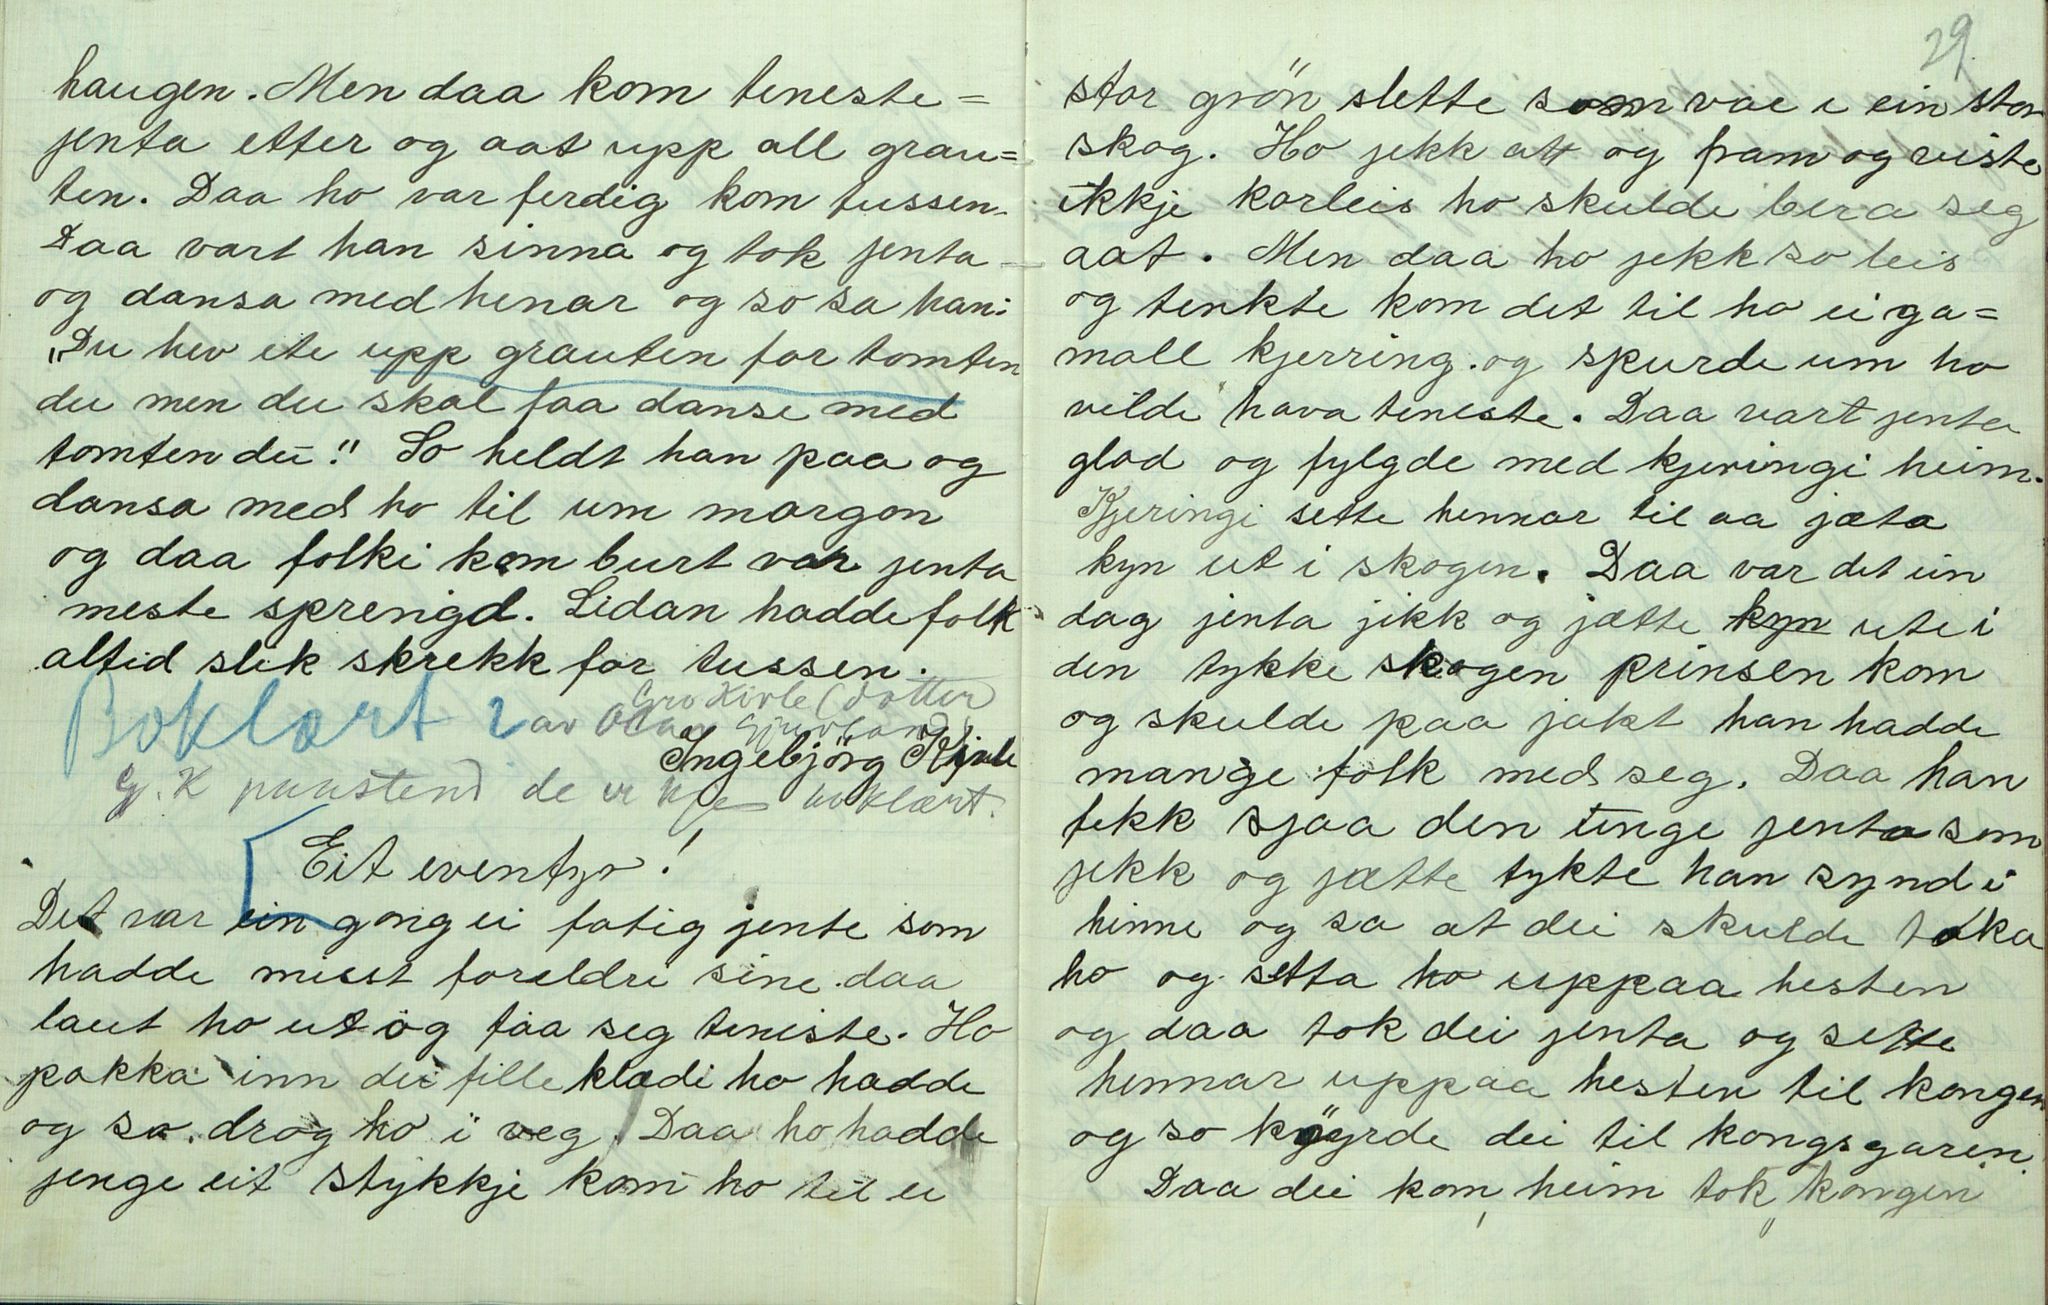 haugen. Men daa kom teneste=
jenta etter og aat upp all grau=
ten. Daa ho var ferdig kom tussen.
Daa vart han sinna og tok jenta
og dansa med henar og so sa han:
"Du hev ete upp grauten for tomten
du men du skal faa danse med
tomten du!" So heldt han paa og
dansa med ho til um morgon
og daa folki kom burt var jenta
meste sprengd. Sidan hadde folk
altid slik skrekk for tussen.
Boklært? av Gro Kivle (dotter
Ingebjörg Kivle
G. K paastend de er kje boklært.
Eit eventyr!
Det var ein gong ei fatig jente som
hadde misst foreldri sine daa
laut ho ut og faa seg teneste. Ho
pakka inn dei fille klædi ho hadde
og so drog ho i veg. Daa ho hadde
jenge eit stykkje kom ho til ei
29
stor grön slette som var i ein stor
skog. Ho jekk att og fram og viste
ikkje korleis ho skulde bera seg
aat. Men daa ho jekk so leis
og tenkte kom det til ho ei ga=
mall kjerring. og spurde um ho
vilde hava teneste. Daa vart jenta
glad og fylgde med kjeringi heim.
Kjeringi sette hennar til aa jæta
kyn ut i skogen. Daa var det ein
dag jenta jikk og jætte kyn ute i
den tykke skogen prinsen kom
og skulde paa jakt han hadde
mange folk med seg. Daa han
fekk sjaa den unge jenta som
jekk og jætte tykte han synd i
hinne og sa at dei skulde taka
ho og setta ho uppaa hesten
og daa tok dei jenta og sette
hennar uppaa hesten til kongen
og so köyrde dei til kongsgaren.
Daa dei kom heim tok kongen